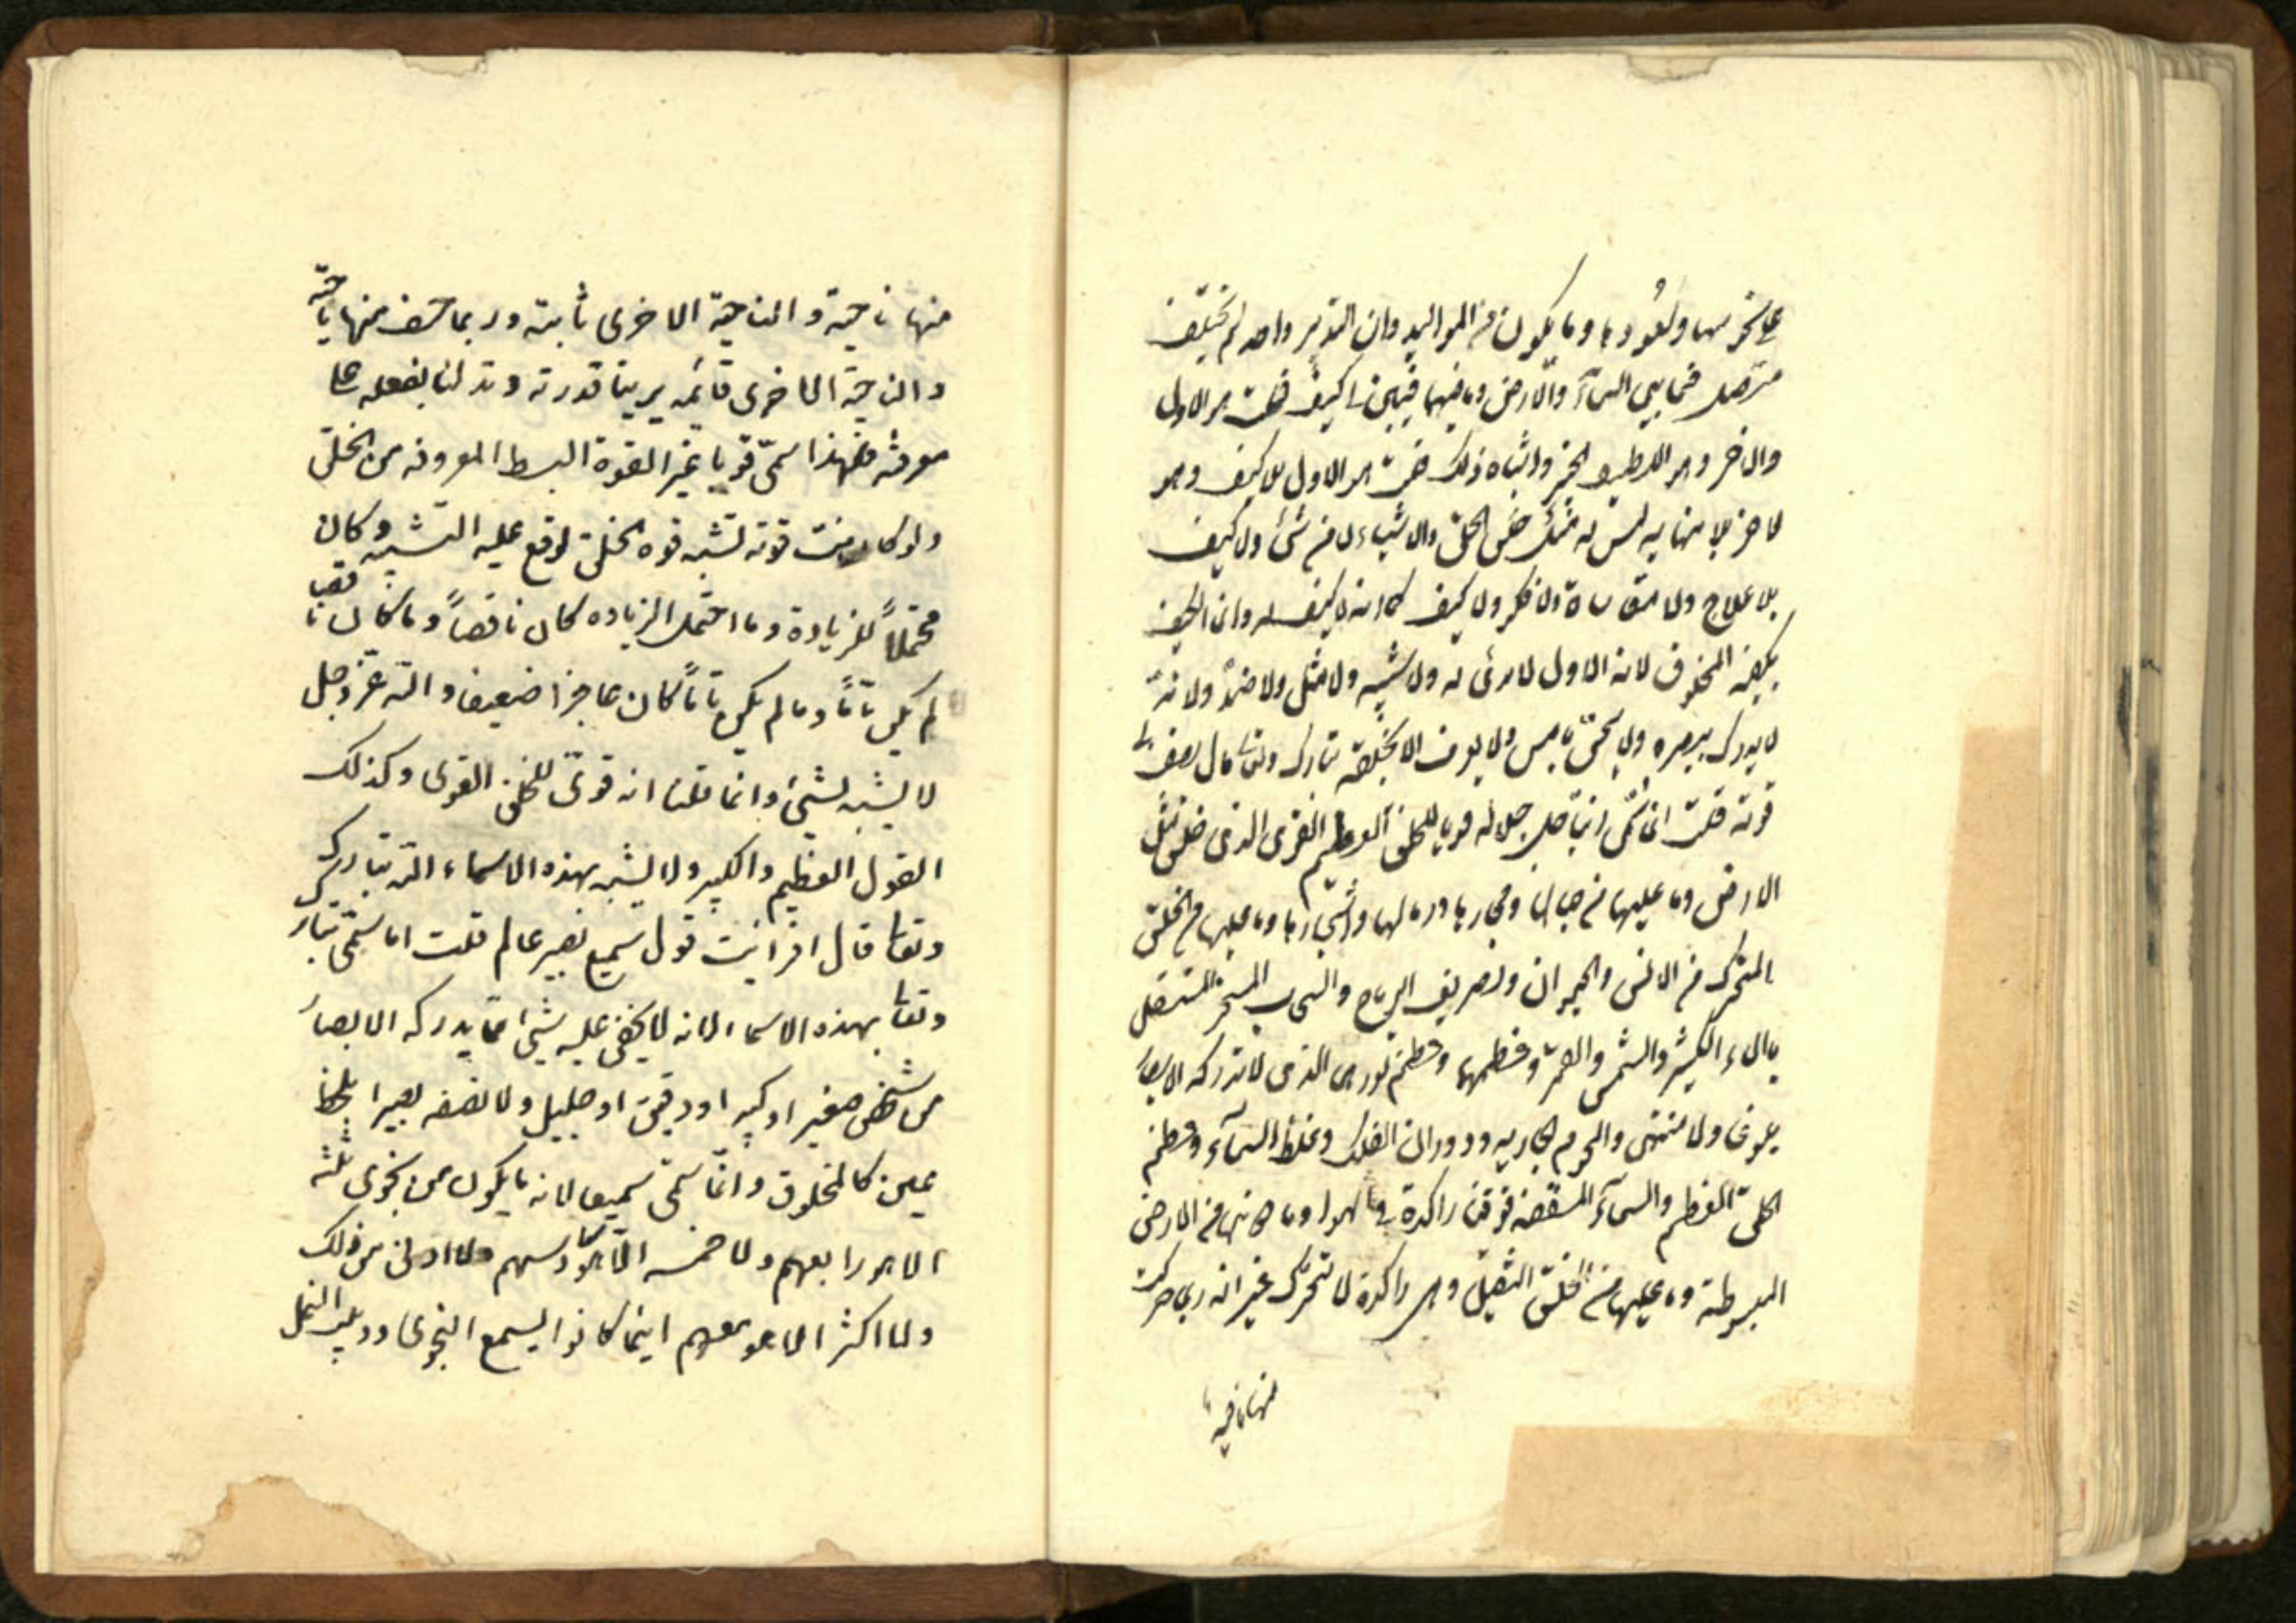 على نحوسها وسعودها وما يكون من المواليد وان التدبير واحد لم يختلف
متصل فيما بين السمآء والارض وما فيها قال كيف قلت هو الاول
والاخر وهو اللطيف الخبير واشباه ذلك قلت هو الاول بلا كيف وهو
لاخر بلا نهاية ليس له مثل خلق الخلق والاشياء لا من شئ ولا كيف
بلا علاج ولا معاناة ولا فكر ولا كيف كما انه لا كيف له وانما الكيف
بكيفية المخلوق لانه الاول لا بدئ له ولا شبيه ولا مثل ولا ضدّ ولا ندّ
لا يدرك ببصره ولا يحسّ بلمس ولا يعرف الا بخلقه تبارك وتعالى قال فصف لى
قوته قلت انما سمّى ربنا جل جلاله قويا للخلق العظيم القوى الذى خلق مثل
الارض وما عليها من جبالها وبحارها ورمالها واشجارها وما عليها من الخلق
المتحرك من الانس والحيوان وتصريف الرياح والسحاب المسخر المثقل
بالماء الكثير والشمس والقمر وعظمهما وعظم نورهما الذى لا تدركه الابصار
بلوغا ولا منتهى والنجوم الجاريه ودوران الفلك وغلظ السمآء وعظم
الخلق العظيم والسمآء المسقفه فوقنا راكدة فى الهوا وما دونها من الارض
المبسوطة وما عليها من الخلق الثقيل وهى راكدة لا تتحرك غير انه ربما حركت
منها ناحية
منها ناحية والناحية الاخرى ثابته وربما خسف منها ناحية
والناحية الاخرى قائمه يرينا قدرته ويدلنا بفعله على
معرفته فلهذا سمّى قويا لا غير القوة البسط المعروفه من الخلق
ولو كانت قوته تشبه قوه الخلق لوقع عليه التشبيه وكان
محتملاً للزيادة وما احتمل الزياده كان ناقصاً وما كان ناقصا
لم يكن تامّاً وما لم يكن تامّاً كان عاجزا ضعيفا والله عزّ وجل
لا يشبه بشئ وانما قلنا انه قوىّ للخلق القوى وكذلك
القول العظيم والكبير ولا يشبه بهذه الاسماء الله تبارك
وتعالى قال افرايت قول سميع بصير عالم قلت انما سمّى تبارك
وتعالى بهذه الاسماء لانه لا يخفى عليه شئ ممّا يدركه الابصار
من شخص صغير او كبير او دقيق او جليل ولا نصفه بصيرا بلحظ
عين كالمخلوق وانّما سمّى سميعا لانه ما يكون من نجوى ثلثه
الا هو رابعهم ولا خمسه الّا هو سادسهم ولا ادنى من ذلك
ولا اكثر الا هو معهم اينما كانوا يسمع النجوى ودبيب النمل